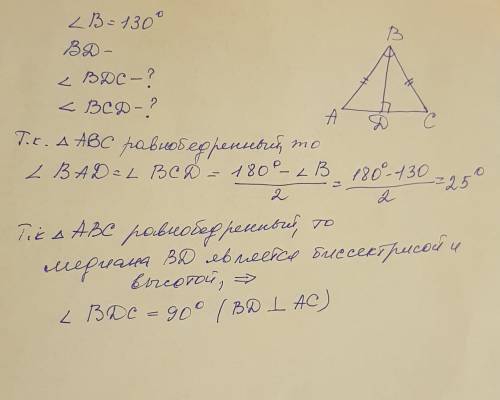 ∠B = 130°
BD –
∠ BDC – ?
∠ BCD – ?
B
A
D
C
Т.к. △ ABC равнобедренный, то
∠ BAD = ∠ BCD = (180° – ∠B)/2 = (180° – 130)/2 = 25°
Т.к △ ABC равнобедренный, то
медиана BD является биссектрисой и
высотой, ⇒
∠ BDC = 90° (BD ⊥ AC)